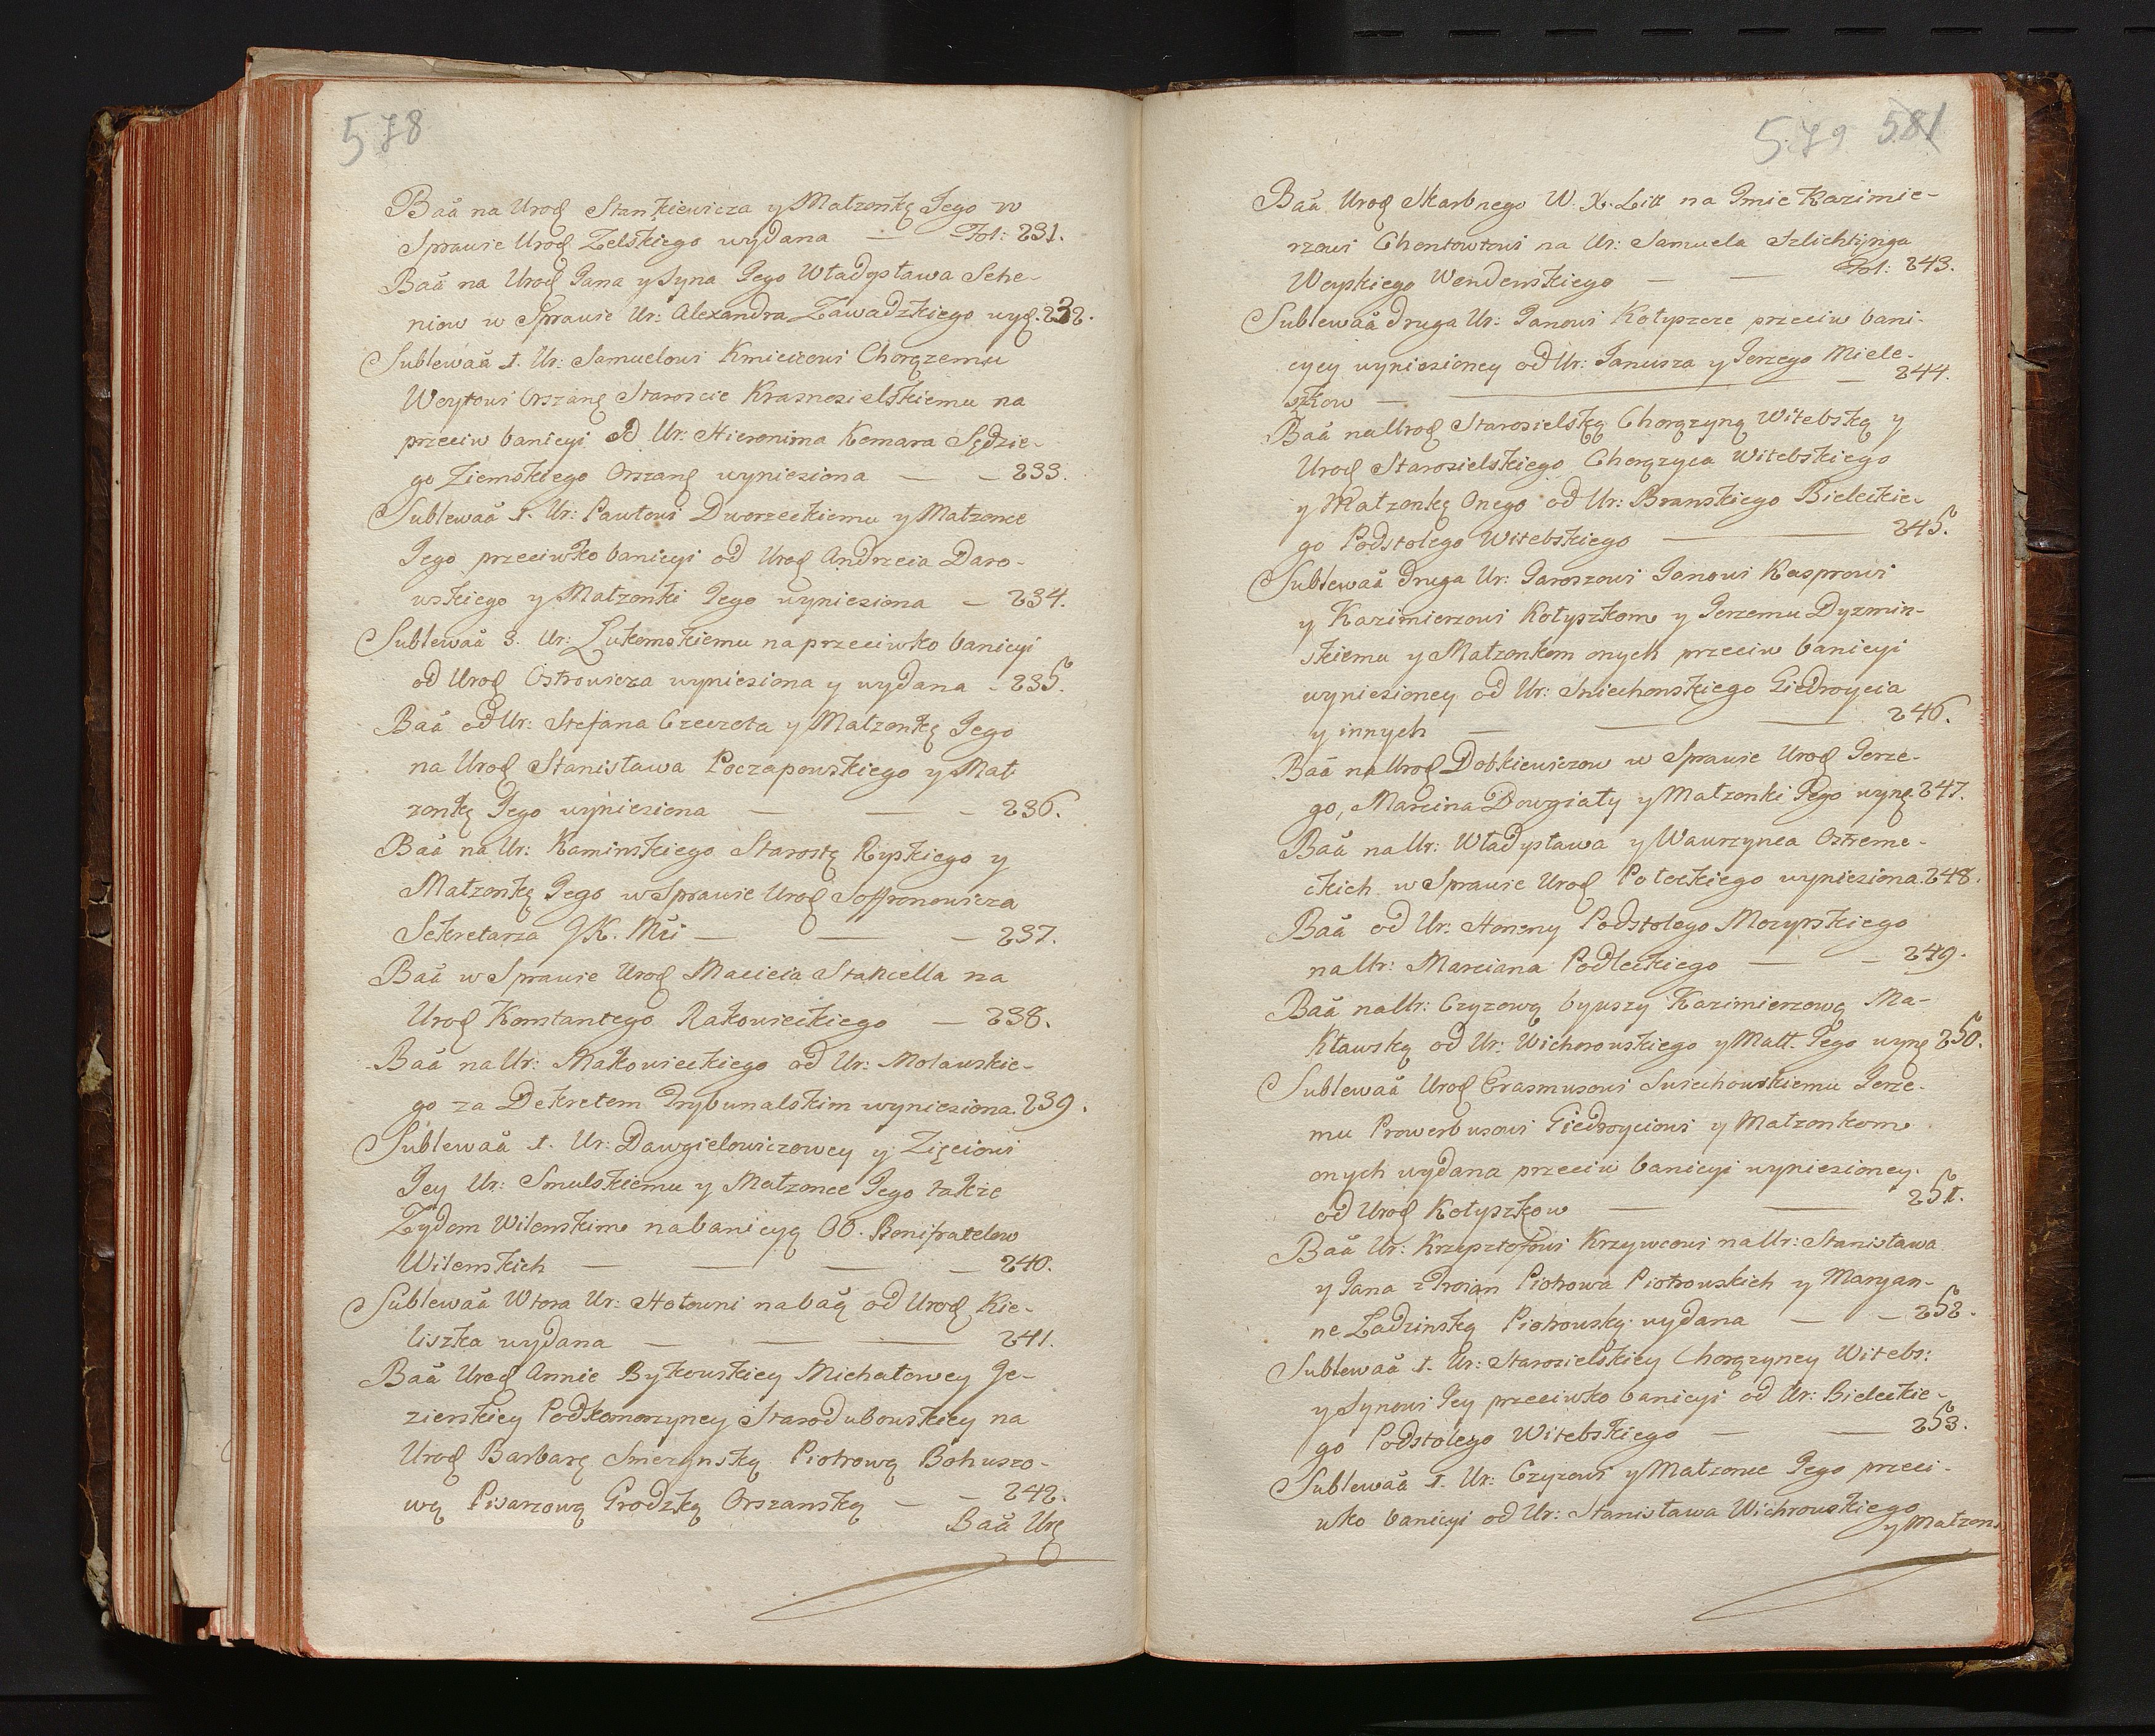 578
Baã na Urod Stankiewicza y Małzonkę Jego w
Sprawie Urod Zelskiego wydana — Fol: 231.
Baã na Urod Jana y Syna Jego Władysława Sche-
niow w Sprawie Ur: Alexandra Zawadzkiego wyd. 232.
Sublewaã 1. Ur: Samuelowi Kmicicowi Chorązemu
Woytowi Orszanę Staroscie Krasnosielskiemu na
przeciw banicyi od Ur: Hieronima Komara Sędzie-
go Ziemskiego Orszanę wyniesiona — – 233.
Sublewaã 1. Ur: Pawłowi Dworzeckiemu y Małzonce
Jego przeciwko banicyi od Urod Andrzeia Daro-
wskiego y Małzonki Jego wyniesiona – 234.
Sublewaã 3. Ur: Łukomskiemu naprzeciwko banicyi
od Urod Ostrowicza wyniesiona y wydana – 235.
Baã od Ur: Stefana Czeczota y Małzonkę Jego
na Urod Stanisława Poczapowskiego y Mał
zonkę Jego wyniesiona — — – 236.
Baã na Ur: Kaminskiego Starostę Ryskiego y
Małzonkę Jego w Sprawie Urod Soffronowicza
Sekretarza JK. Mći — — – 237.
Baã w Sprawie Urod Macieia Stancella na
Urod Konstantego Rakowieckiego — 238.
Baã na Ur: Makowieckiego od Ur: Molawskie-
go za Dekretem Trybunalskim wyniesiona. 239.
Sublewaã 1. Ur: Dawgielowiczowey y Zięciowi
Jey Ur: Smulskiemu y Małzonce Jego także
Zydom Wilenskim nabanicyą OO. Bonifratelow
Wilenskich — — — – 240.
Sublewaã Wtora Ur: Hołowni nabaą od Urod Kie-
liszka wydana — — — 241.
Baã Urod Annie Bykowskiey Michałowey Je-
zierskiey Podkomorzyney Starodubowskiey na
Urod Barbarę Smerzynską Piotrową Bohuszo-
wą Pisarzową Grodzką Orszanską — – 242.
Baã Urę
579 581
Baã Urod Skarbnego W. X. Litt na Jmie Kazimie-
rzowi Chontowtowi na Ur: Samuela Szlichtynga
Woyskiego Wendenskiego — — Fol: 243.
Sublewaã druga Ur: Janowi Kotyszcze przeciw bani-
cyey wyniesioney od Ur: Janusza y Jerzego Miele-
szkow — — – 244.
Baã na Urod Starosielską Chorązyną Witebską y
Urod Starosielskiego Chorązyca Witebskiego
y Małzonkę Onego od Ur: Branskiego Bieleckie-
go Podstolego Witebskiego — — 245.
Sublewaã druga Ur: Jaroszowi Janowi Kasprowi
y Kazimierzowi Kotyszkom y Jerzemu Dyzmin-
skiemu y Małzonkom onych przeciw banicyi
wyniesioney od Ur: Sniechowskiego Giedroycia
y innych — — — 246.
Baã na Urod Dobkiewiczow w Sprawie Urod Jerze-
go, Marcina Dowgiały y Małzonki Jego wynę 247.
Baã na Ur: Władysława y Wawrzynca Ostreme-
ckich w Sprawie Urod Poteckiego wyniesiona. 248.
Baã od Ur: Horeny Podstolego Mozyrskiego
na Ur: Marciana Podleckiego — – 249.
Baã na Ur: Czyzową bywszy Kazimierzową Ma-
kławską od Ur: Wichorowskiego y Małł. Jego wynę 250.
Sublewaã Urod Erasmusowi Swiechowskiemu Jerze-
mu Prowerbusowi Giedroyciowi y Małzonkom
onych wydana przeciw banicyi wyniesioney.
od Urod Kotyszkow — — 251.
Baã Ur: Krzysztofowi Krzywcowi na Ur: Stanisława
y Jana Piotrowa Piotrowskich y Maryan-
ne Ładzinską Piotrowską wydana — – 252.
Sublewaã 1. Ur: Starosielskiey Chorązyney Witebs:
y Synowi Jey przeciwko banicyi od Ur: Bieleckie-
go Podstolego Witebskiego — — 253.
Sublewaã 1. Ur: Czyzowi y Małzonce Jego przeci-
wko banicyi od Ur: Stanisława Wichrowskiego
y Małzon